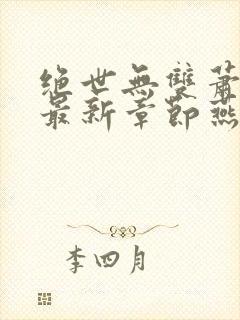 绝世無雙蕭
最新章節燕
李四月